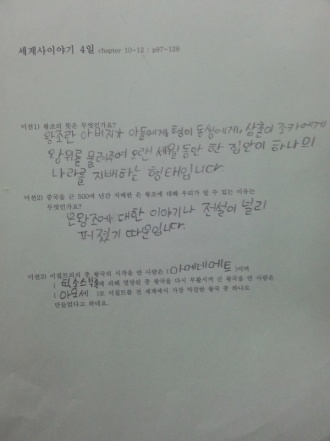 세계사이야기 4일 chapter 10-12 : p97-128
미션1) 왕조의 뜻은 무엇인가요?
왕조란 아버지가 아들에게, 형이 동생에게, 삼촌이 조카에게
왕위를 물려주어 오랜 세월 동안 한 집안이 하나의
나라를 지배하는 형태입니다
미션2) 중국을 근 500여 년간 지배한 은 왕조에 대해 우리가 알 수 있는 이유는
무엇인가요?
은왕조에 대한 이야기나 전설이 널리
퍼졌기 따문입니다.
미션3) 이집트의 중 왕국의 시작을 연 사람은 (아메네메트)이며
에 의해 멸망된 중 왕국을 다시 부활시켜 신 왕국을 연 사람은
(아모세)로 이집트를 전 세계에서 가장 막강한 왕국 중 하나로
만들었다고 하네요.